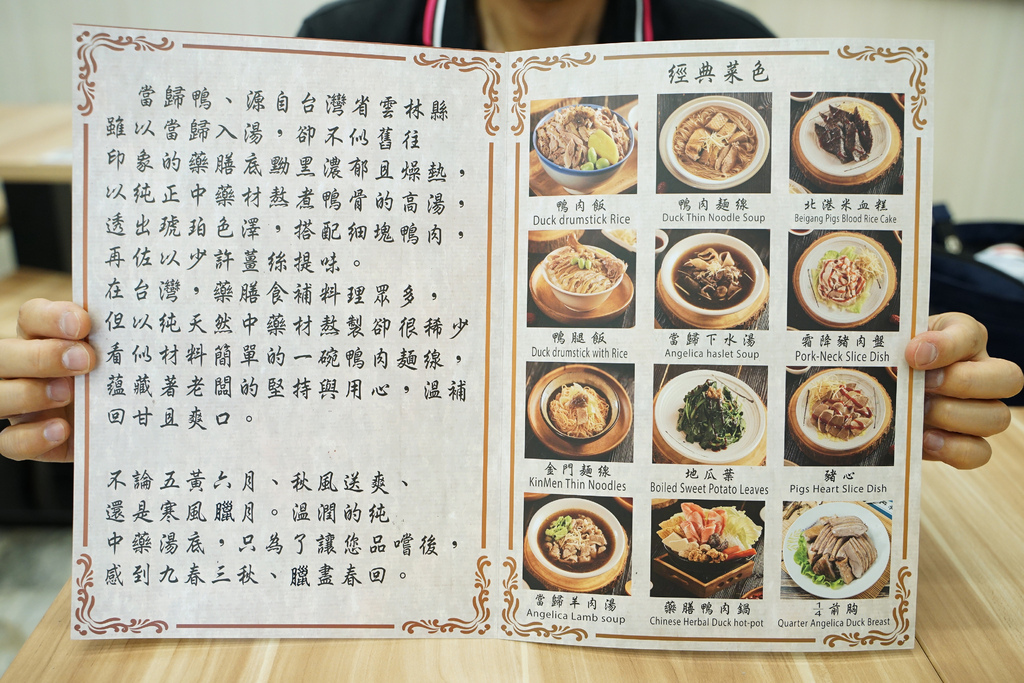 當歸鴨、源自台灣省雲林縣
雖以當歸入湯，卻不似舊往
印象的藥膳底黝黑濃郁且燥熱，
以純正中藥材熬煮鴨骨的高湯，
透出琥珀色澤，搭配細塊鴨肉，
再佐以少許薑絲提味。
在台灣，藥膳食補料理眾多，
但以純天然中藥材熬製卻很稀少
看似材料簡單的一碗鴨肉麵線，
蘊藏著老闆的堅持與用心，溫補
回甘且爽口。
不論五黃六月、秋風送爽、
還是寒風臘月。溫潤的純
中藥湯底，只為了讓您品嚐後，
感到九春三秋、臘盡春回。
經典菜色
鴨肉飯
Duck drumstick Rice
鴨肉麵線
Duck Thin Noodle Soup
北港米血糕
Beigang Pigs Blood Rice Cake
鴨腿飯
Duck drumstick with Rice
當歸下水湯
Angelica haslet Soup
霜降豬肉盤
Pork-Neck Slice Dish
金門麵線
KinMen Thin Noodles
地瓜葉
Boiled Sweet Potato Leaves
豬心
Pigs Heart Slice Dish
當歸羊肉湯
Angelica Lamb soup
藥膳鴨肉鍋
Chinese Herbal Duck hot-pot
1/4前胸
Quarter Angelica Duck Breast